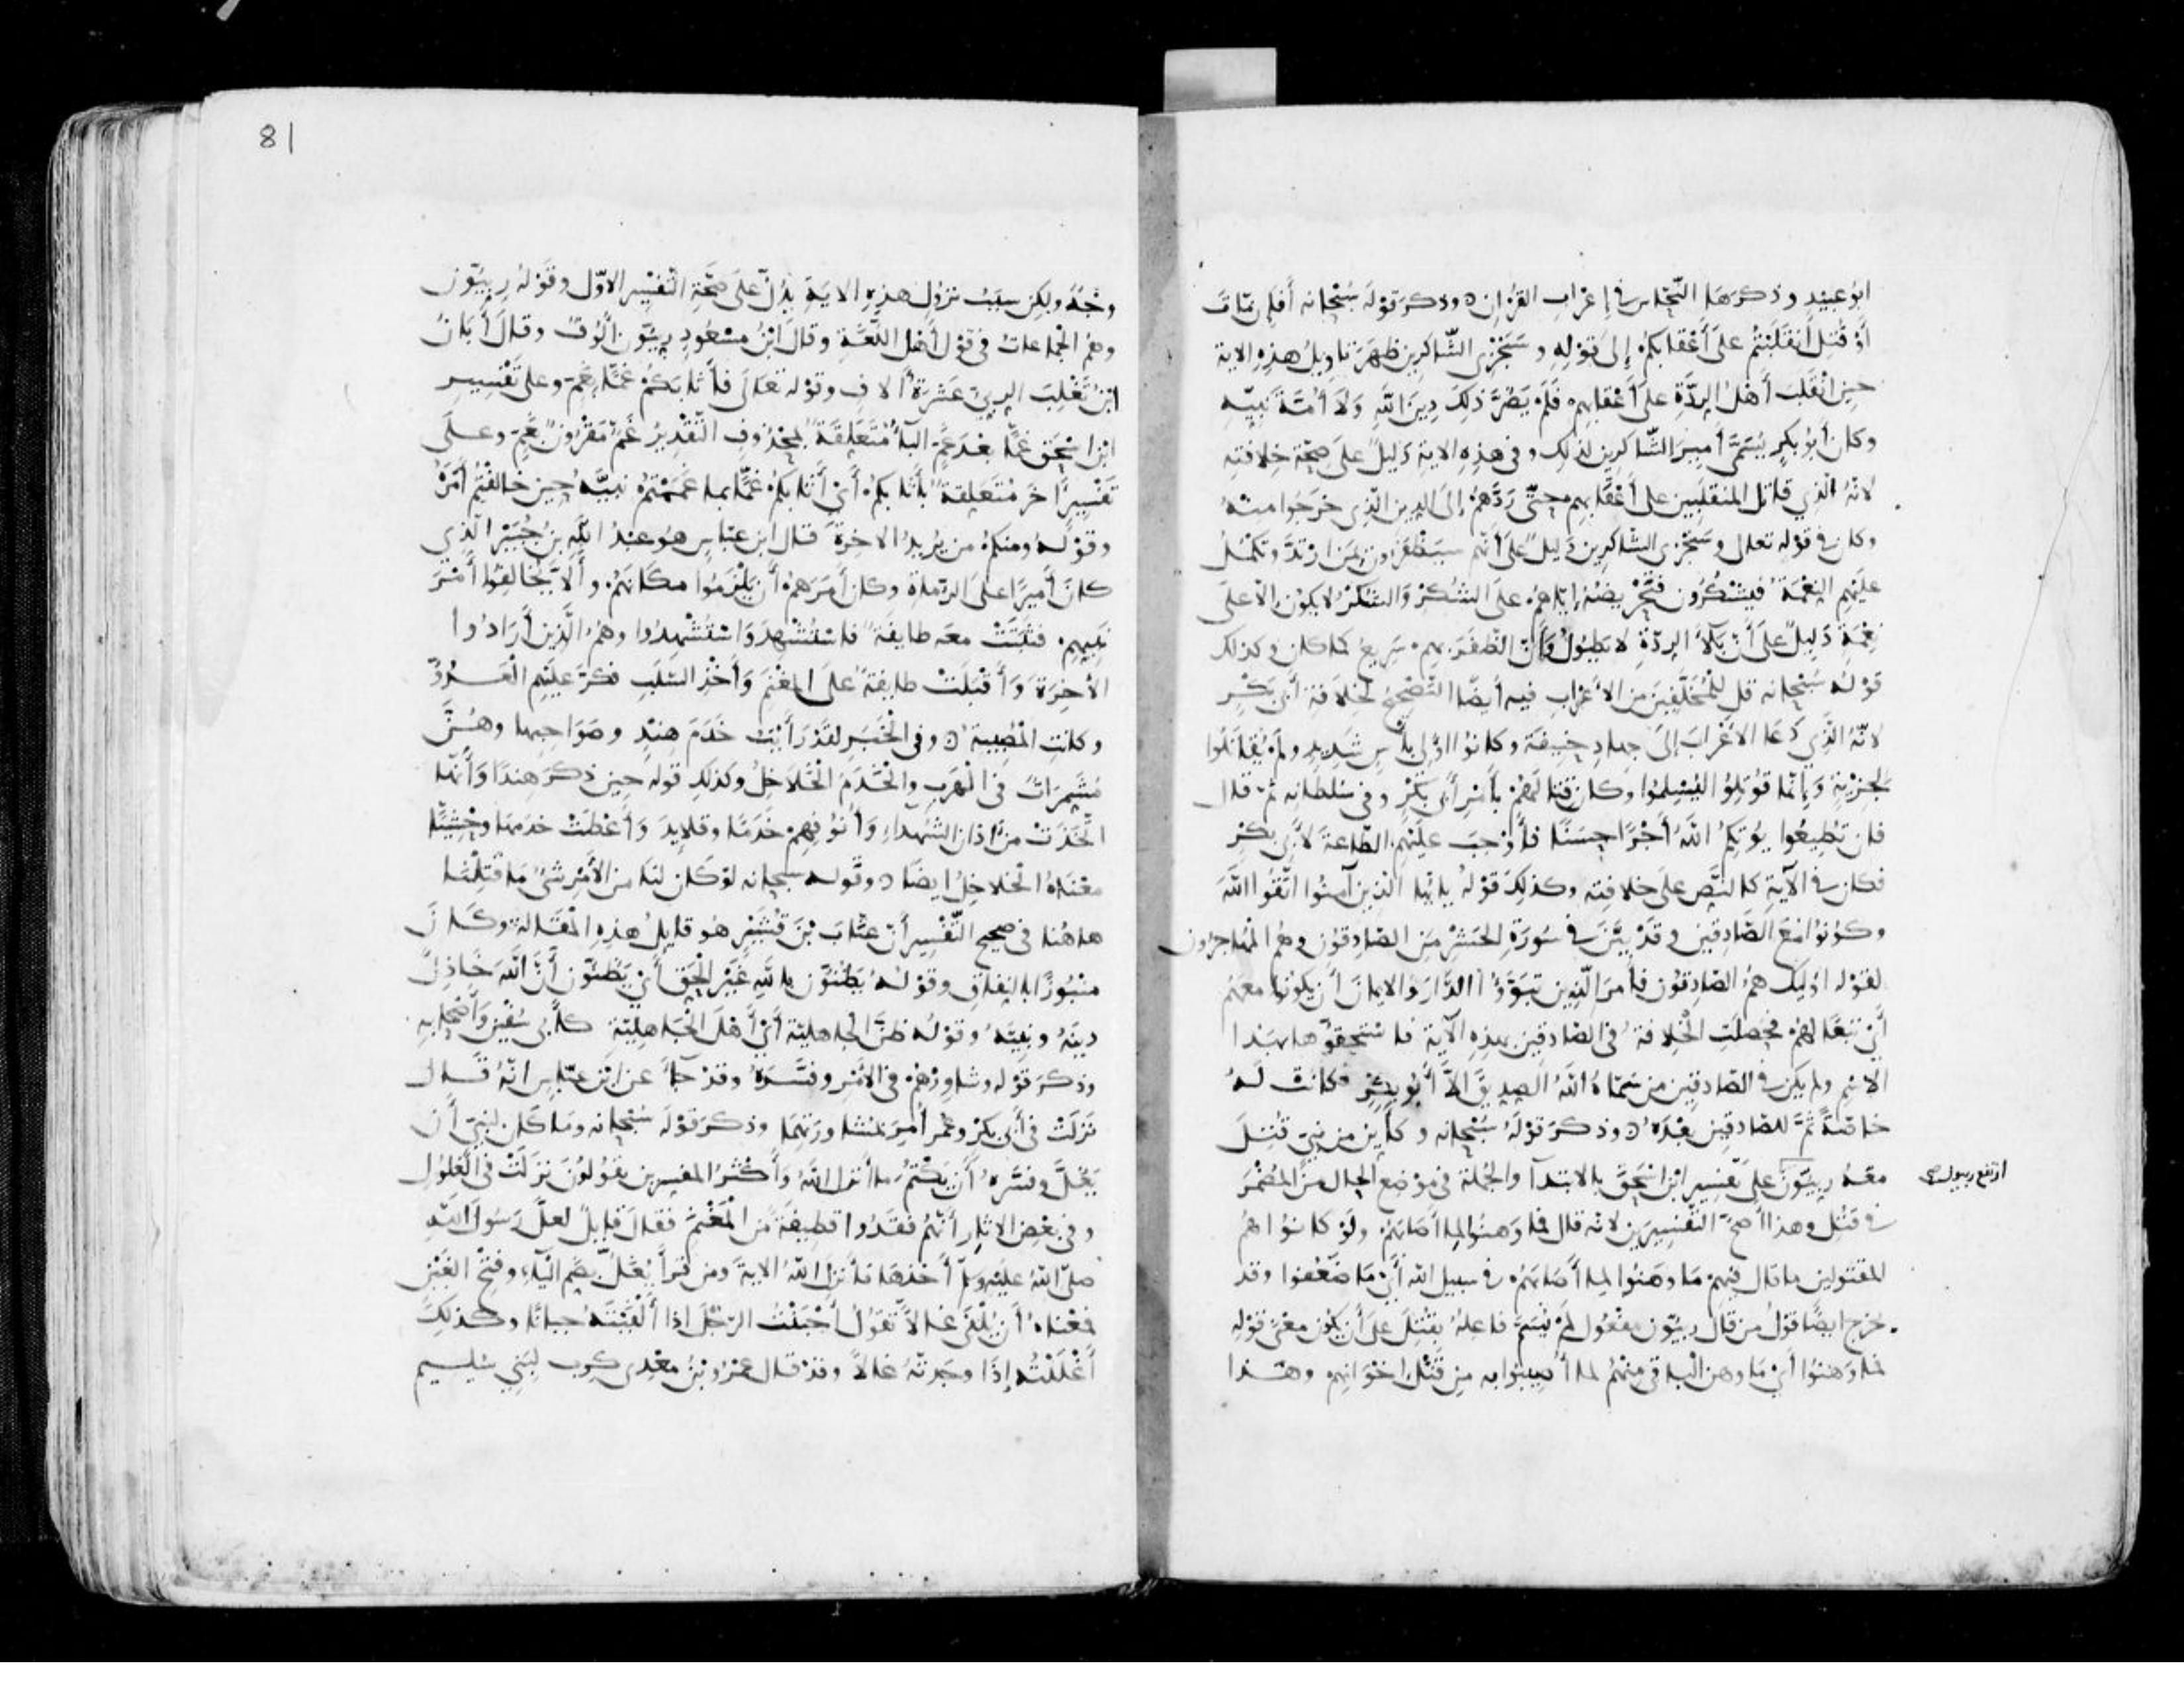 ابو عبيد وذكرها النحاس في إعراب القرءان وذكر قوله سبحانه أفإن مات
أو قتل أنقلبتم على أعقابكم إلى قوله وسنجزي الشاكرين ظهر تاويل هذه الاية
حين انقلب أهل الردة على أعقابهم فلم يضر ذلك دين الله ولا أمة نبيه
وكان أبو بكر يسمى أمير الشاكرين لذلك وفي هذه الاية دليل على صحة خلافته
لانه الذي قاتل المنقلبين على أعقابهم حتى ردهم إلى الدين الذي خرجوا منه
وكان في قوله تعالى وسنجزي الشاكرين دليل على أنهم سيظفرون بمن ارتد وتكمل
عليهم النعمة فيشكرون فتحريضه إياهم على الشكر والشكر لا يكون إلا على
نعمة دليل على أن بلاء الردة لا يطول وأن الظفر بهم سريع كما كان وكذلك
قوله سبحانه قل للمخلفين من الاعراب فيه أيضا التصحيح لخلافة أبي بكر
لانه الذي دعا الاعراب إلى جهاد حنيفة وكانوا اولي بأس شديد ولم يقاتلوا
لجزية وإنما قوتلوا ليسلموا وكان قتالهم بأمر أبي بكر وفي سلطانه ثم قال
فان تطيعوا يوتكم الله أجرا حسنا فأوجب عليهم الطاعة لأبي بكر
فكان في الآية كالنص على خلافته وكذلك قوله يا أيها الذين آمنوا اتقوا الله
وكونوا مع الصادقين وقد بين في سورة الحشر من الصادقون وهم المهاجرون
لقوله اوليك هم الصادقون فأمر الذين تبوؤا الدار والايمان أن يكونوا معهم
أي تبعا لهم فحصلت الخلافة في الصادقين بهذه الآية فاستحقوها بهذا
الاسم ولم يكن في الصادقين من سماه الله الصديق إلا أبو بكر فكانت له
خاصة ثم للصادقين بعده وذكر قوله سبحانه وكأين من نبي قتل
معه ربيون على تفسير ابن اسحق بالابتدآ والجملة في موضع الحال من المضمر
ارتفع ربيون صح
في قتل وهذا أصح التفسيرين لانه قال فما وهنوا لما أصابهم ولو كانوا هم
المقتولين ما قال فيهم ما وهنوا لما أصابهم في سبيل الله أي ما ضعفوا وقد
يخرج ايضا قول من قال ربيون مفعول لم يسم فاعله بقتل على أن يكون معنى قوله
فما وهنوا أي ما وهن الباقي منهم لما أصيبوا به من قتل إخوانهم وهذا
81
وجه ولكن سبب نزول هذه الاية يدل على صحة التفسير الاول وقوله ربيون
وهم الجماعات في قول أهل اللغة وقال ابن مسعود ربيون ألوف وقال أبان
ابن تغلب الربي عشرة ألاف وقوله تعالى فأثابكم غما بغم وعلى تفسير
ابن اسحق غما بعد غم الباء متعلقة بمحذوف التقدير غم مقرون بغم وعلى
تفسير اخر متعلقة بأثابكم أي أثابكم غما بما غممتم نبيه حين خالفتم أمره
وقوله ومنكم من يريد الاخرة قال ابن عباس هو عبد الله بن جبير الذي
كان أميرا على الرماة وكان أمرهم أن يلزموا مكانهم وألا يخالفوا أمر
نبيهم فثبتت معه طايفة فاستشهد واستشهدوا وهم الذين أرادوا
الآخرة وأقبلت طايفة على المغنم وأخذ السلب فكر عليهم العدو
وكانت المصيبة وفي الخبر لقد رأيت خدم هند وصواحبها وهن
مشمرات في الهرب والخدم الخلاخل وكذلك قوله حين ذكر هندا وأنها
اتخذت من اذان الشهداء وأنوفهم خدما وقلايد وأعطت خدمها وحشيا
معناه الخلاخل ايضا وقوله سبحانه لو كان لنا من الأمر شئ ما قتلنا
هاهنا في صحيح التفسير أن عتاب بن قشير هو قايل هذه المقالة وكان
منبوزا بالنفاق وقوله يظنون بالله غير الحق أي يظنون أن الله خاذل
دينه ونبيه وقوله ظن الجاهلية أي أهل الجاهلية كأبي سفين وأصحابه
وذكر قوله وشاورهم في الأمر وفسره وقد جاء عن ابن عباس انه قال
نزلت في أبي بكر وعمر أمر بمشاورتهما وذكر قوله سبحانه وما كان لنبي أن
يغل وفسره أن يكتم ما أنزل الله وأكثر المفسرين يقولون نزلت في الغلول
وفي بعض الاثار أنهم فقدوا قطيفة من المغنم فقال قايل لعل رسول الله
صلى الله عليه وسلم أخذها فأنزل الله الاية ومن قرأ يغل بضم الياء وفتح الغين
فمعناه أن يلفى غالا تقول أجبنت الرجل إذا ألفيته جبانا وكذلك
أغللته إذا وجدته غالا وقد قال عمرو بن معدي كرب لبني سليم